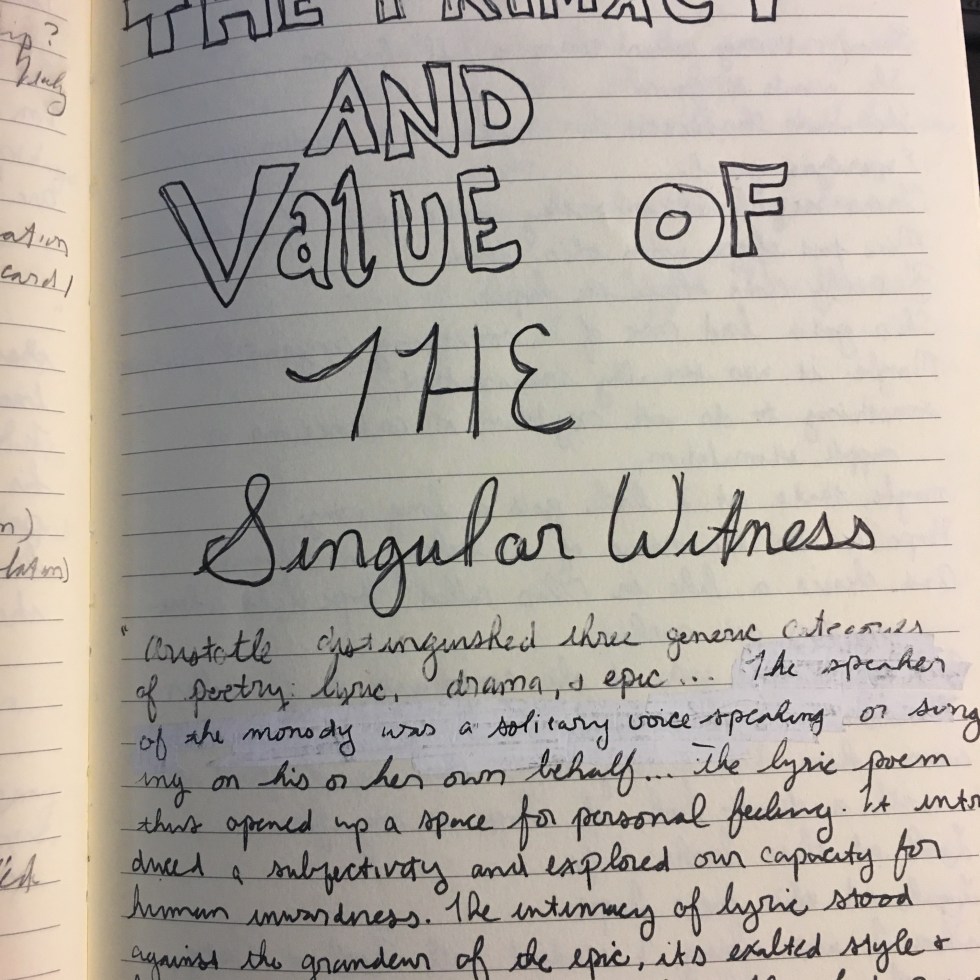 THE PRIMACY
AND
Value OF
THE
Singular Witness
"Aristotle distinguished three generic categories
of poetry: lyric, drama, & epic... The speaker
of the monody was a solitary voice speaking or sing
ing on his or her own behalf... The lyric poem
thus opened up a space for personal feeling. It intro
duced a subjectivity and explored our capacity for
human inwardness. The intimacy of lyric stood
against the grandeur of the epic, its exalted style &
up?
ation
card)